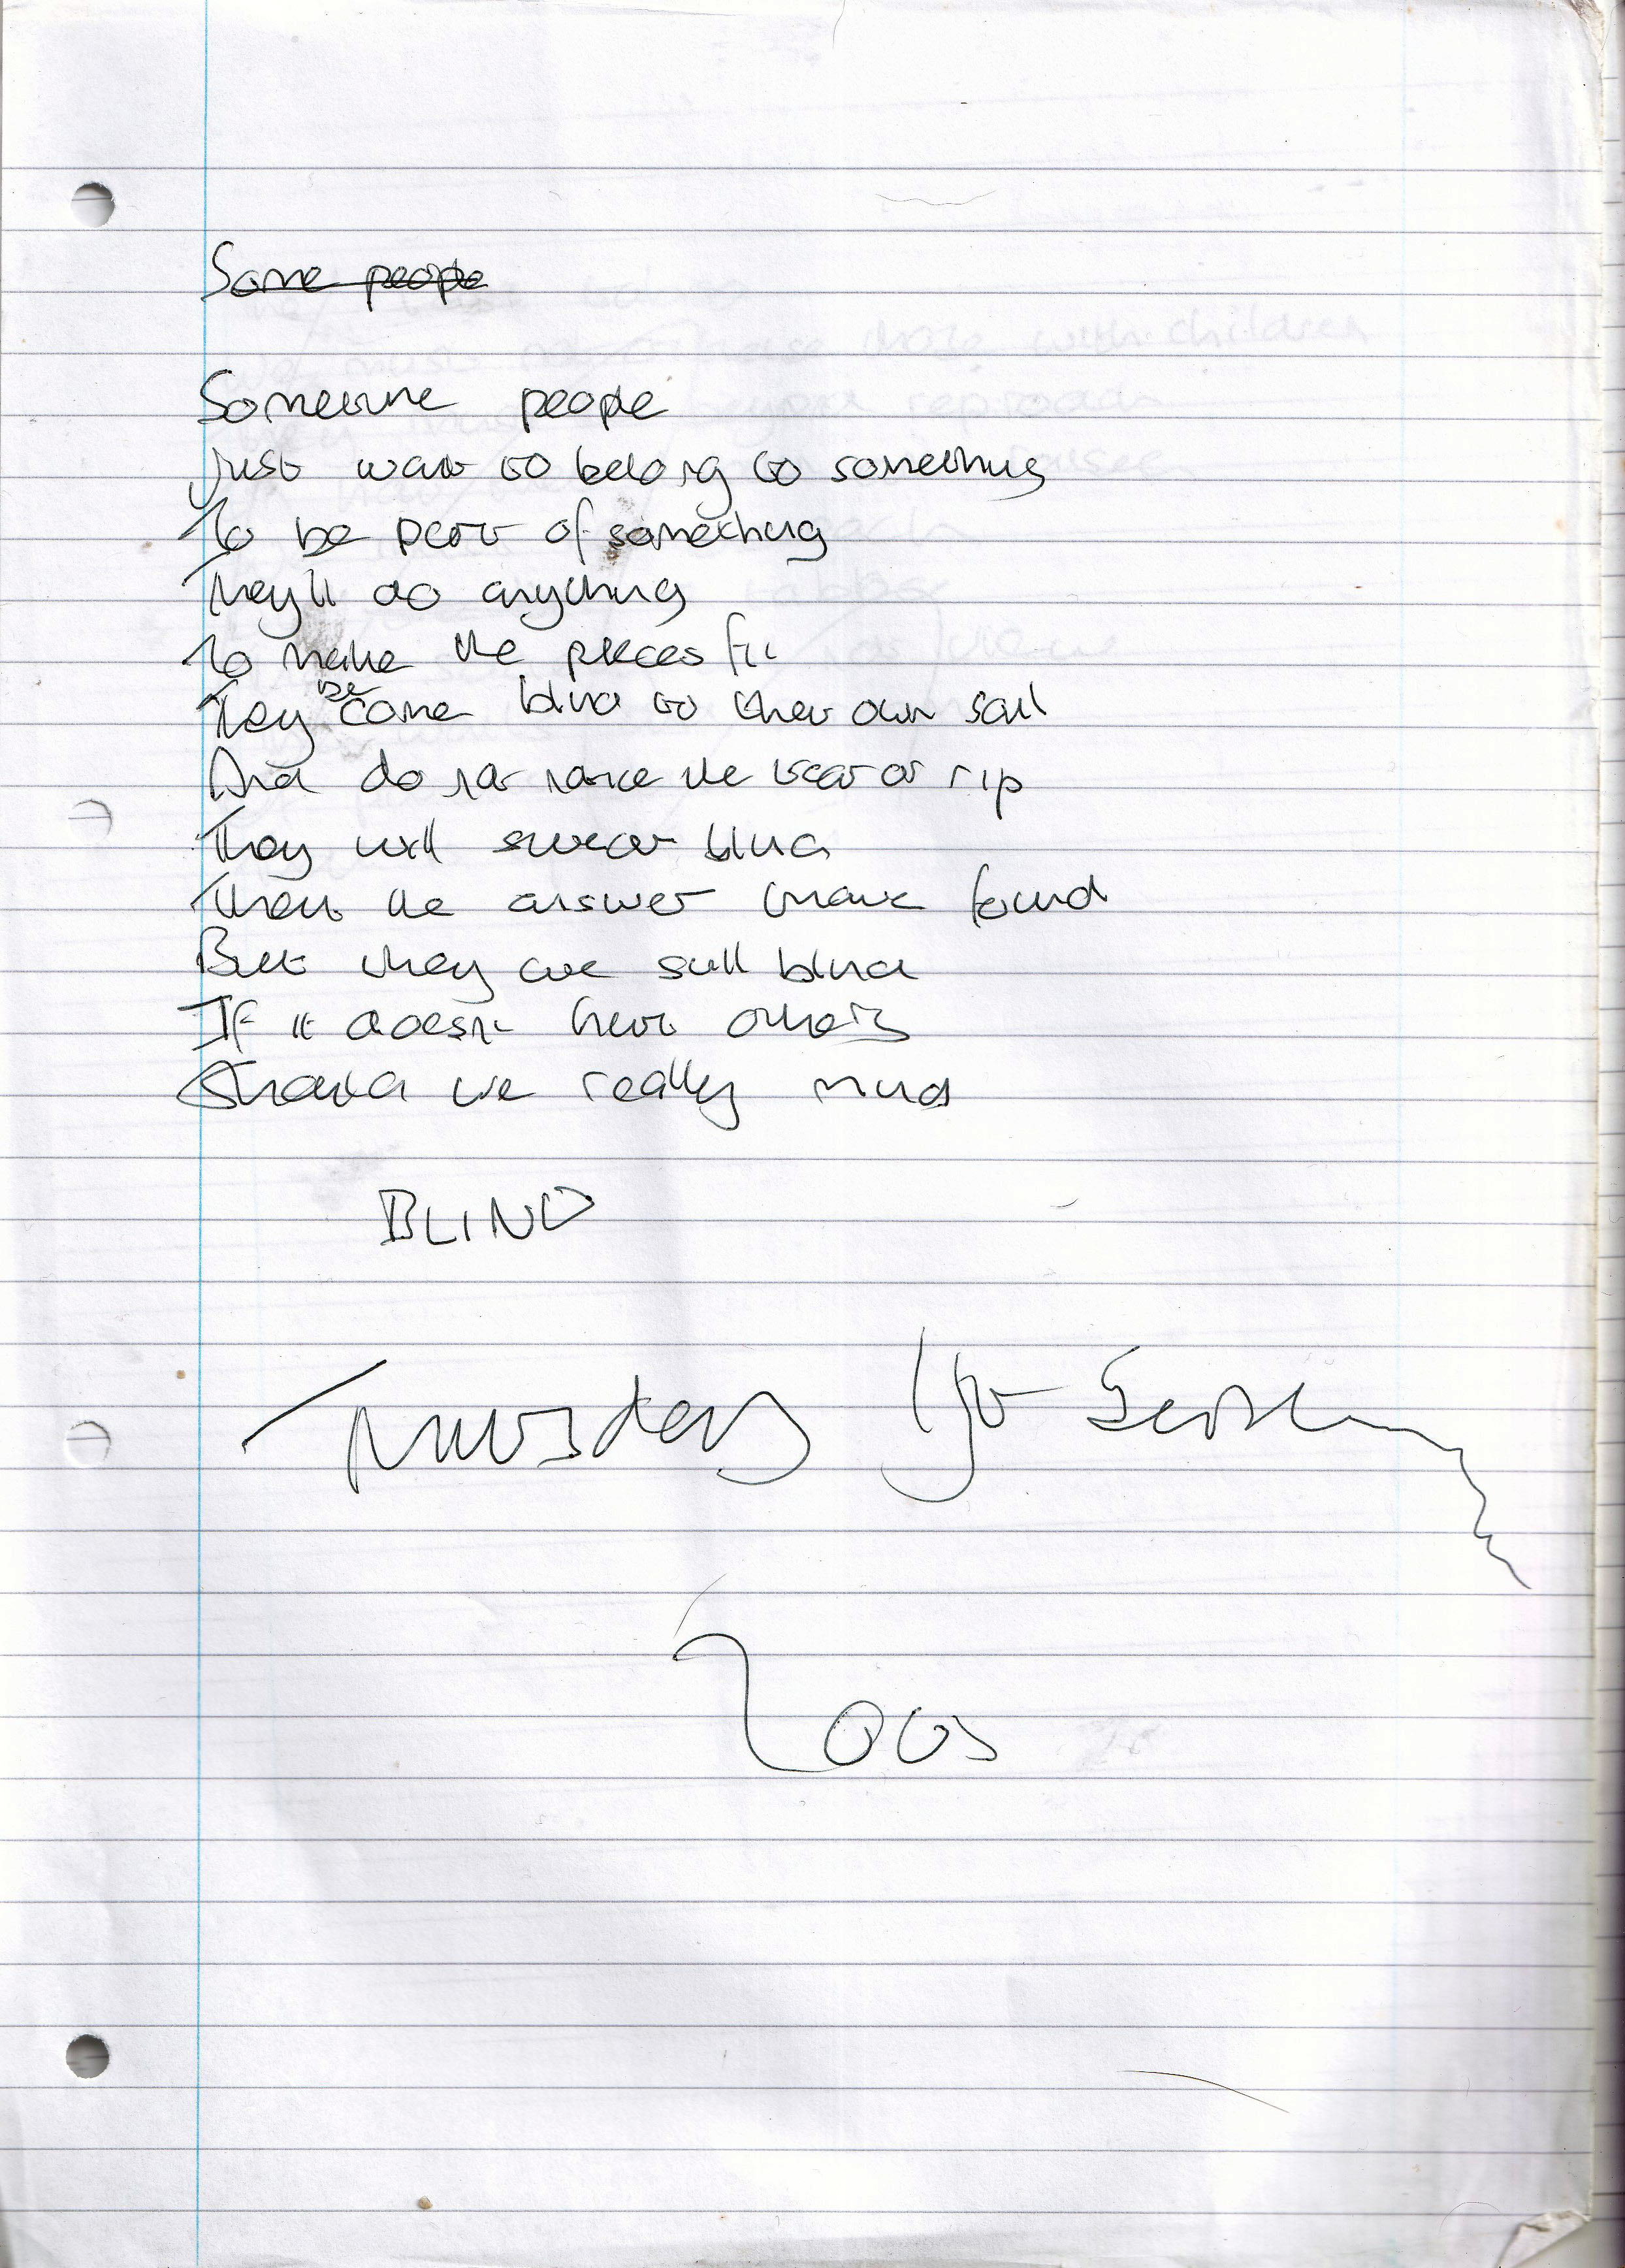 Some people
Sometime people
just want to belong to something
To be part of something
They'll do anything
To make the pieces fit
They become blind to their own soul
And do not notice the tear or rip
They will swear blind
the answer found
But they are still blind
If it doesn't hurt others
Should we really mind
BLIND
Thursday
2005